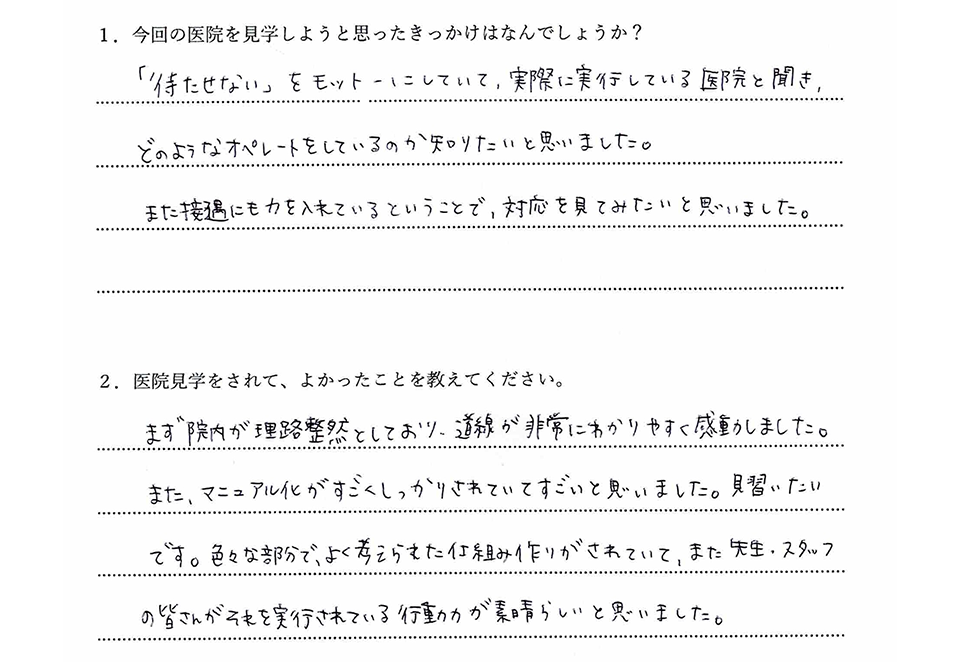 1．今回の医院を見学しようと思ったきっかけはなんでしょうか？
「待たせない」をモットーにしていて,実際に実行している医院と聞き,
どのようなオペレートをしているのか知りたいと思いました。
また接遇にも力を入れているということで,対応を見てみたいと思いました。
2．医院見学をされて、よかったことを教えてください。
まず院内が理路整然としており、道線が非常にわかりやすく感動しました。
また、マニュアル化がすごくしっかりされていてすごいと思いました。見習いたい
です。色々な部分で,よく考えられた仕組み作りがされていて,また先生・スタッフ
の皆さんがそれを実行されている行動力が素晴らしいと思いました。